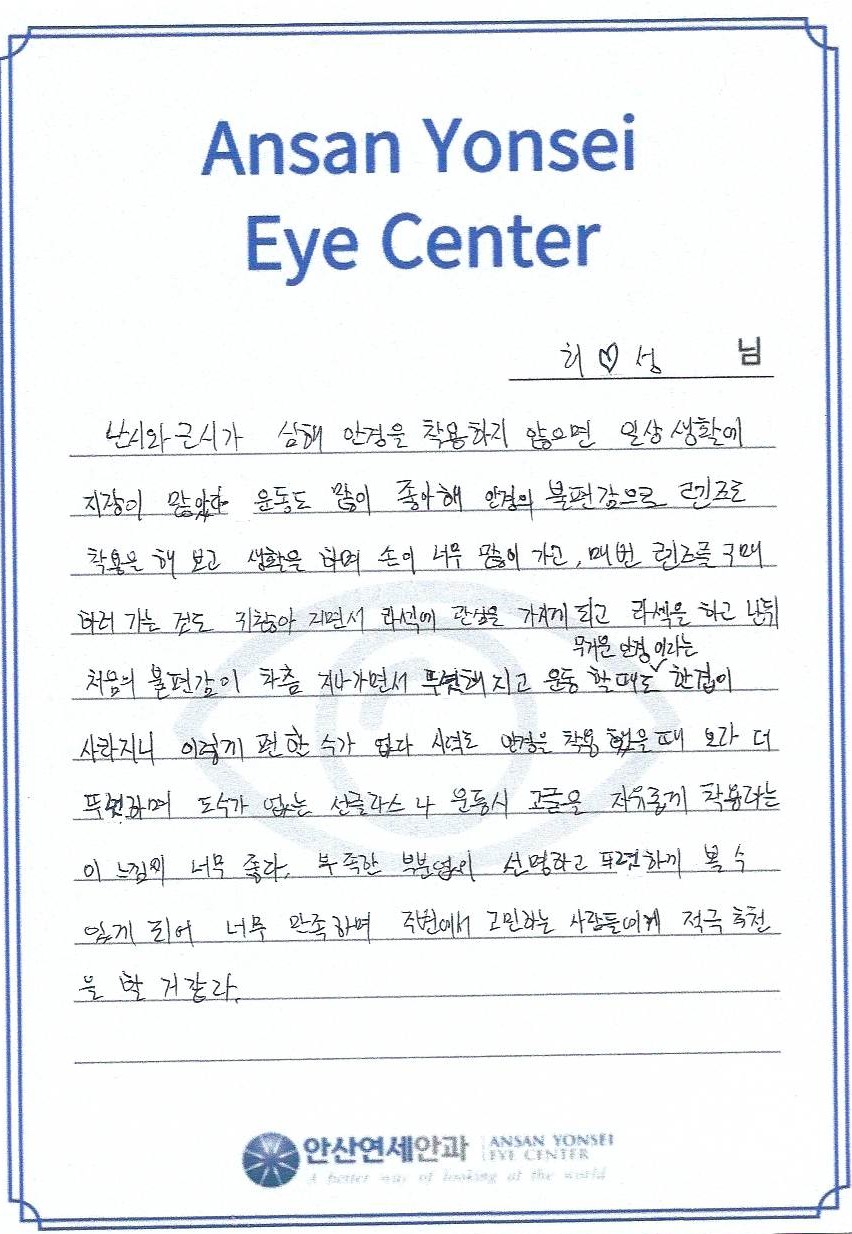 Ansan Yonsei
Eye Center
허♡성 님
난시와 근시가 심해 안경을 착용하지 않으면 일상생활에
지장이 많았다 운동도 많이 좋아해 안경의 불편감으로 렌즈로
착용을 해 보고 생활을 하며 손이 너무 많이 가고, 매번 렌즈를 구매
하러 가는 것도 귀찮아 지면서 라섹에 관심을 가지게 되고 라섹을 하고 난뒤
무거운 안경 이라는
처음의 불편감이 차츰 지나가면서 뚜렷해 지고 운동 할때도 한겹이
사라지니 이렇게 편한 수가 없다 시력도 안경을 착용 했을때 보다 더
뚜렷하며 도수가 없는 선글라스나 운동시 고글을 자유롭게 착용하는
이 느낌이 너무 좋다. 부족한 부분없이 선명하고 뚜렷하게 볼 수
있게 되어 너무 만족하며 주변에서 고민하는 사람들에게 적극 추천
을 할 거 같다.
안산연세안과 ANSAN YONSEI
EYE CENTER
A better way of looking at the world